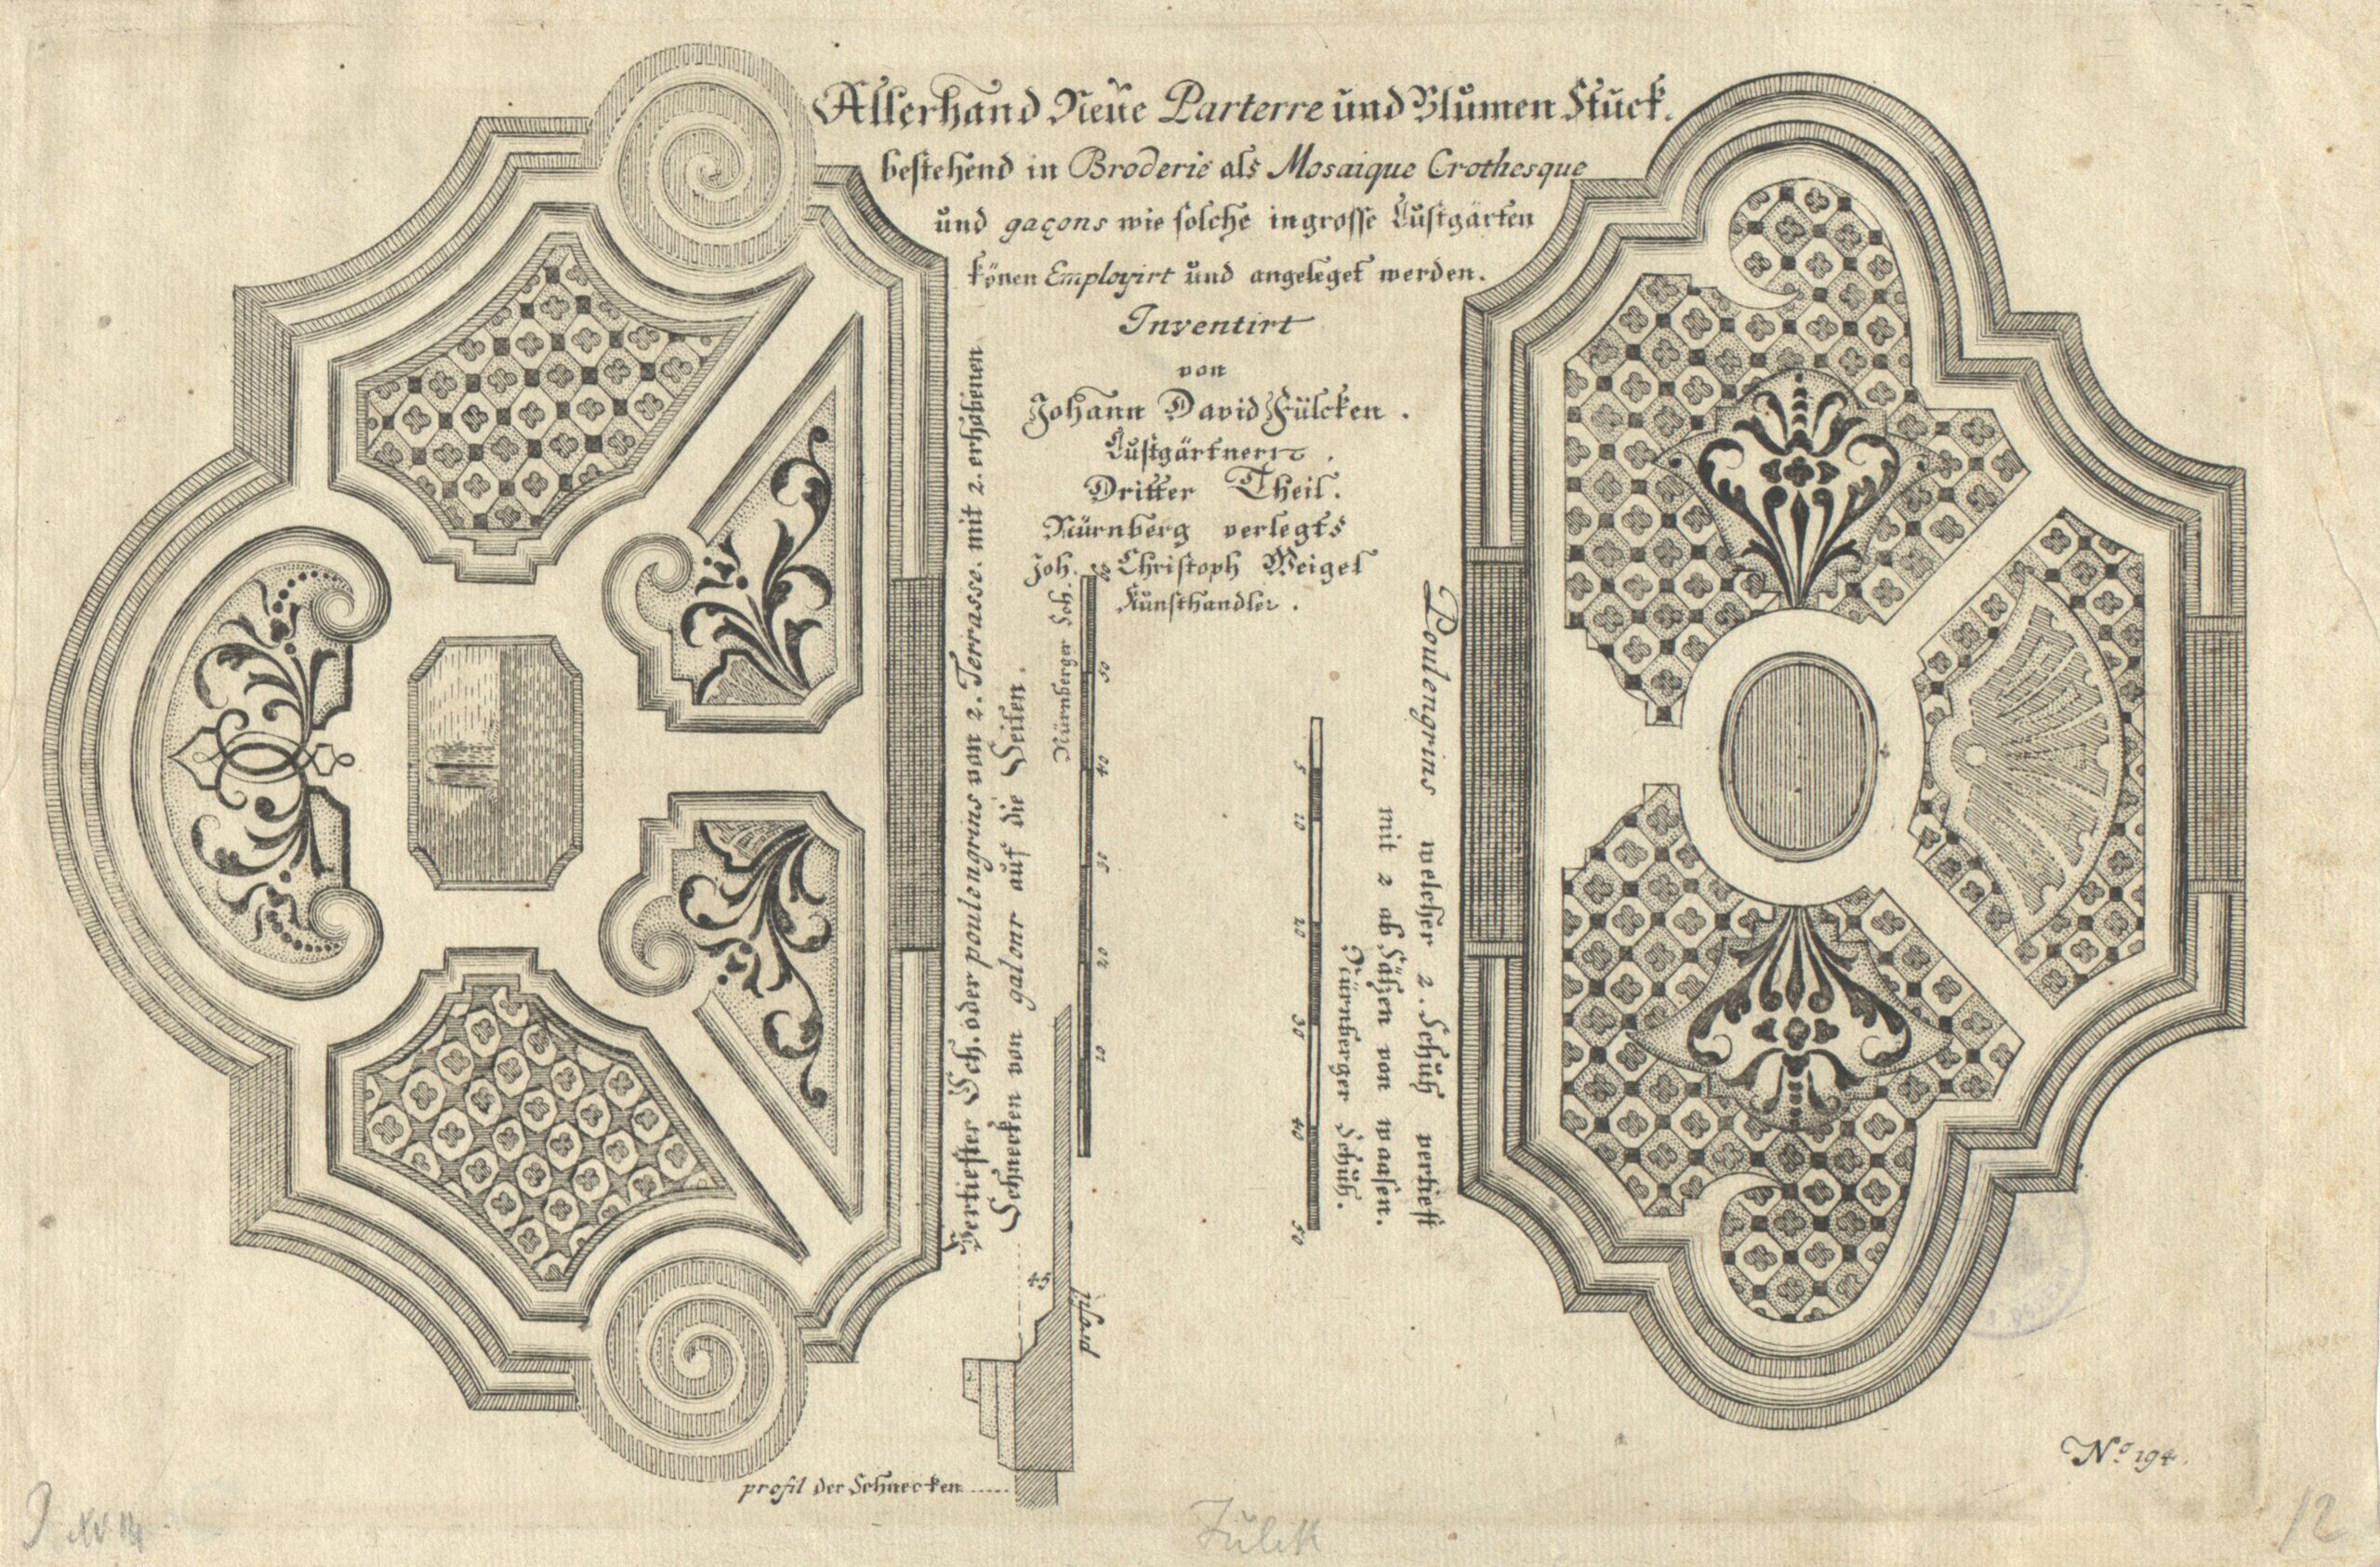 Allerhand Neue Parterre und Blumen Stuck.
bestehend in Broderie als Mosaique Crothesque
und gaçons wie solche in grosse Lustgärten
könen Employirt und angeleget werden.
Inventirt
von
Johann David Fülcken.
Lustgärtnern.
Dritter Theil.
Nürnberg verlegts
Joh. Christoph Weigel
Kunsthandler.
Vertiefter Sch. oder poulengrins von 2. Terrasse. mit 2. erhabenen
Schnecken von galonr auf die Seiten.
Nürnberger Sch.
50
40
30
20
10
5
10
20
30
40
50
Poulengrins welcher 2. Schuh vertieft
mit 2 ab Sätzen von waasen.
Nürnberger Schuh.
45
profil
profil der Schnecken
No. 194.
Fülck
12